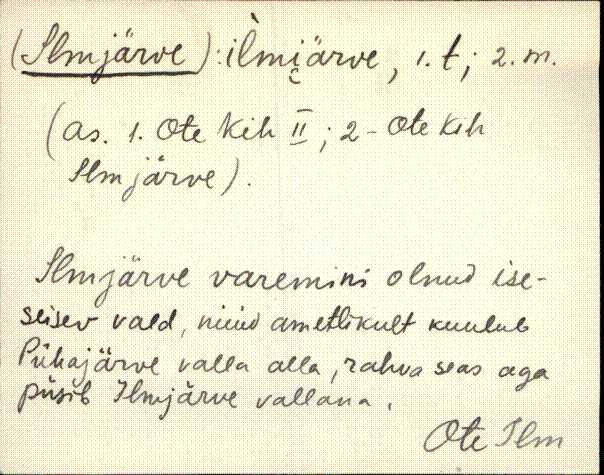 (Ilmjärve): ìlmi̯ärve, 1. t; 2. m.
(as. 1. Ote Kih II; 2 - Ote Kih
Ilmjärve).
Ilmjärve varemini olnud ise-
seisev vald, nüüd ametlikult kuulub
Pühajärve valla alla, rahva seas aga
püsib Ilmjärve vallana.
Ote Ilm